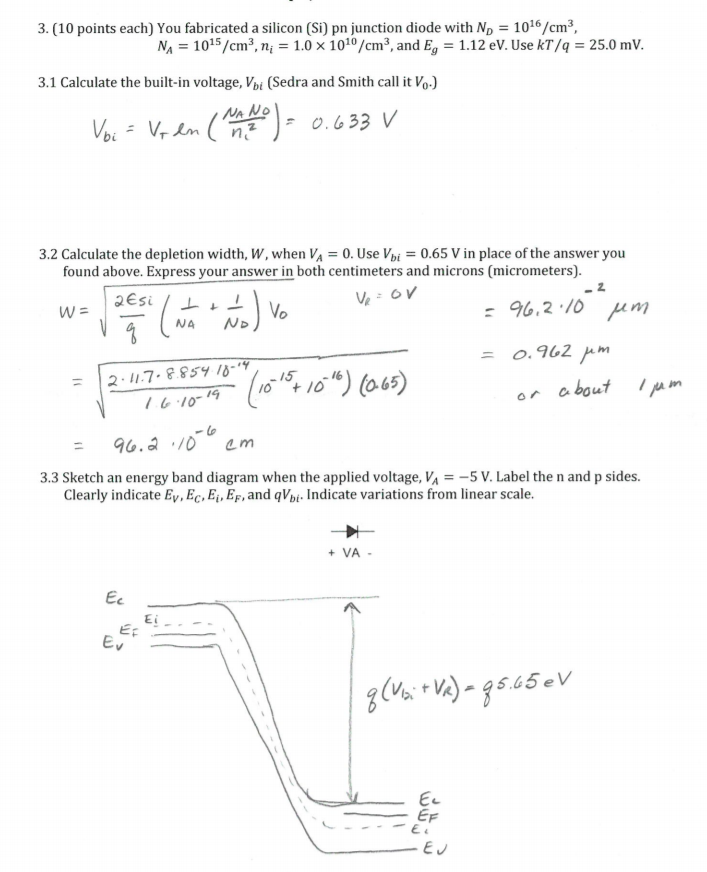 3. (10 points each) You fabricated a silicon (Si) pn junction diode with N_D = 10^16/cm^3,
N_A = 10^15/cm^3, n_i = 1.0 × 10^10/cm^3, and E_g = 1.12 eV. Use kT/q = 25.0 mV.
3.1 Calculate the built-in voltage, V_bi (Sedra and Smith call it V_0.)
V_bi = V_T ln (N_A N_D / n_i^2) = 0.633 V
3.2 Calculate the depletion width, W, when V_A = 0. Use V_bi = 0.65 V in place of the answer you
found above. Express your answer in both centimeters and microns (micrometers).
W = √(2ϵsi / q (1/NA + 1/ND) V_0)
V_R = 0V
= √(2·11.7·8.854 10^-14 / 1.6·10^-19 (10^-15 + 10^-16) (0.65))
= 96.2 ·10^-6 cm
= 96.2·10^-2 μm
= 0.962 μm
or about 1 μm
3.3 Sketch an energy band diagram when the applied voltage, V_A = −5 V. Label the n and p sides.
Clearly indicate E_V, E_C, E_i, E_F, and qV_bi. Indicate variations from linear scale.
+ VA -
Ec
Ei
EF
Ev
q(V_bi + V_R) = q5.65 eV
Ec
EF
Ei
EV